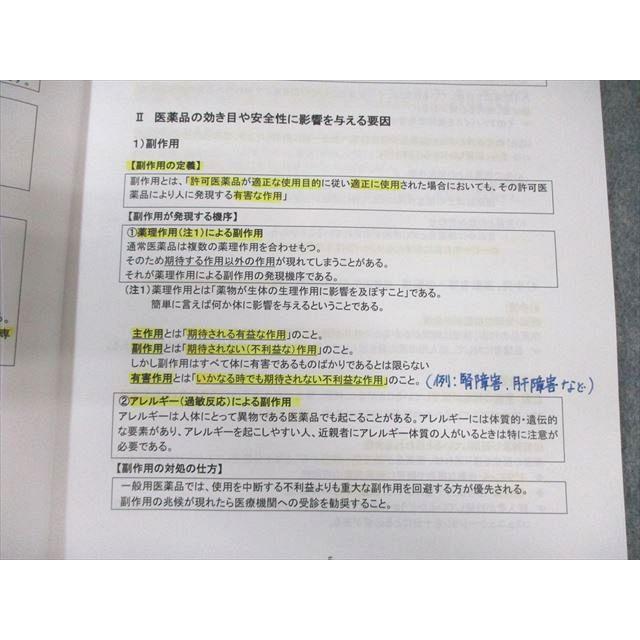 Ⅱ 医薬品の効き目や安全性に影響を与える要因
1)副作用
【副作用の定義】
副作用とは、「許可医薬品が適正な使用目的に従い適正に使用された場合においても、その許可医
薬品により人に発現する有害な作用」
【副作用が発現する機序】
①薬理作用(注1)による副作用
通常医薬品は複数の薬理作用を合わせもつ。
そのため期待する作用以外の作用が現れてしまうことがある。
それが薬理作用による副作用の発現機序である。
(注1)薬理作用とは「薬物が生体の生理作用に影響を及ぼすこと」である。
簡単に言えば何か体に影響を与えるということである。
主作用とは「期待される有益な作用」のこと。
副作用とは「期待されない(不利益な)作用」のこと。
しかし副作用はすべて体に有害であるものばかりであるとは限らない
有害作用とは「いかなる時でも期待されない不利益な作用」のこと。(例:腎障害、肝障害など)
②アレルギー(過敏反応)による副作用
アレルギーは人体にとって異物である医薬品でも起こることがある。アレルギーには体質的・遺伝的
な要素があり、アレルギーを起こしやすい人、近親者にアレルギー体質の人がいるときは特に注意が
必要である。
【副作用の対処の仕方】
一般用医薬品では、使用を中断する不利益よりも重大な副作用を回避する方が優先される。
副作用の兆候が現れたら医療機関への受診を勧奨すること。